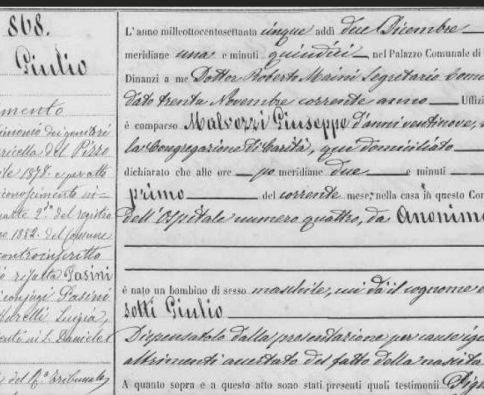 868.
Giulio
timento
matrimonio dei genitori
del Pizzo
1878 e per atto
riconoscimento in-
parte 2.da del registro
del comune
controinscritto
rifatta Pasini
coniugi Pasini
Luigia,
S. Daniele
del R.° Tribunale
L'anno millottocentosettanta cinque addì due Dicembre
meridiane una e minuti quindici nel Palazzo Comunale di
Dinanzi a me Dottor Roberto Maini Segretario
dato trenta Novembre corrente anno Uffizi
è comparso Malvezzi Giuseppe d'anni ventinove,
la Congregazione di Carità, qui domiciliato
dichiarato che alle ore po meridiane due e minuti
primo del corrente mese, nella casa in questo Com
dell'Ospitale numero quattro, da Anonim
è nato un bambino di sesso mascheile, cui dà il cognome
sotti Giulio
Dispensatolo dalla presentazione per causa
altrimenti accertato del fatto della nascita
A quanto sopra e a questo atto sono stati presenti quali testimonii